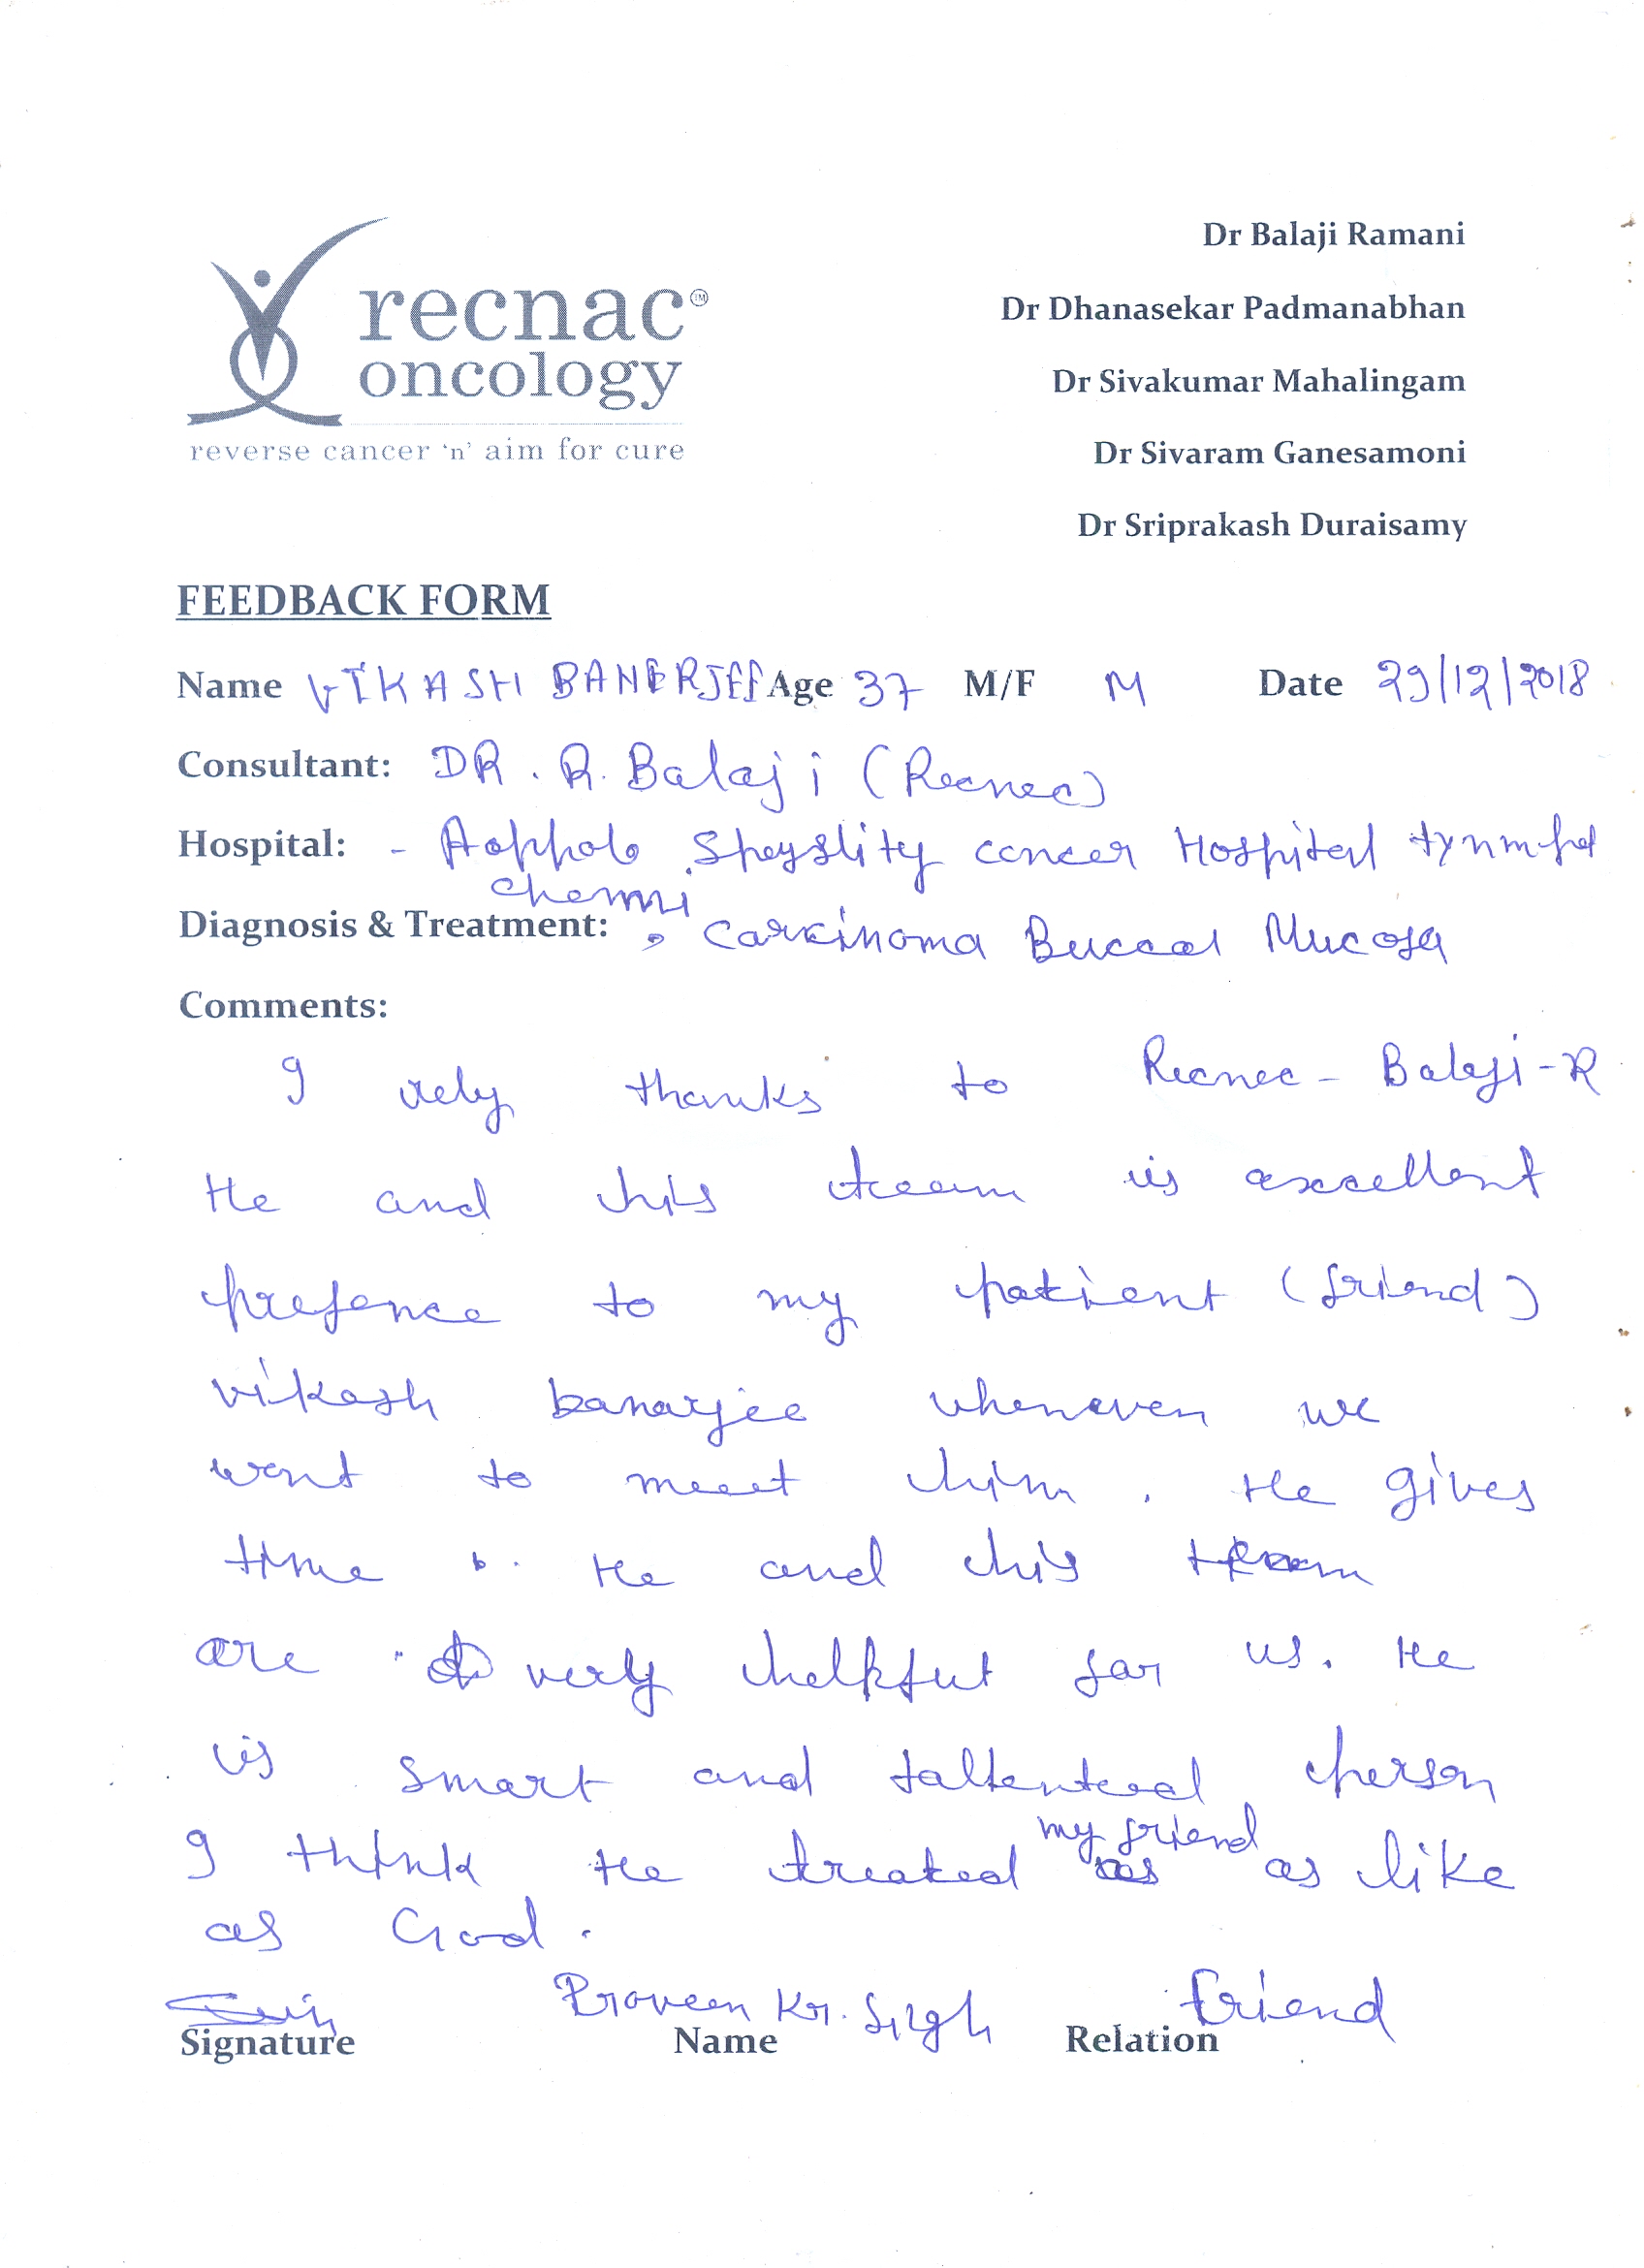 Dr Balaji Ramani
recnac TM
Dr Dhanasekar Padmanabhan
oncology
Dr Sivakumar Mahalingam
reverse cancer 'n' aim for cure
Dr Sivaram Ganesamoni
Dr Sriprakash Duraisamy
FEEDBACK FORM
Name VIKASH BANERJEE Age 37 M/F M Date 29/12/2018
Consultant: DR. R. Balaji (Recnec)
Hospital: - Aoppolo cencer Hospital
chenni
Diagnosis & Treatment: , Carcinoma Buccal Mucosa
Comments:
I very thanks to Recnec - Balaji - R
He and his team is excellent
presence to my patient (friend)
vikash banarjee whenever we
went to meeet him. He gives
time. He and his team
are very helpful for us. He
is smart and tallented person
I think He treated my friend as like
as God.
Praveen Kr. Singh Friend
Signature Name Relation